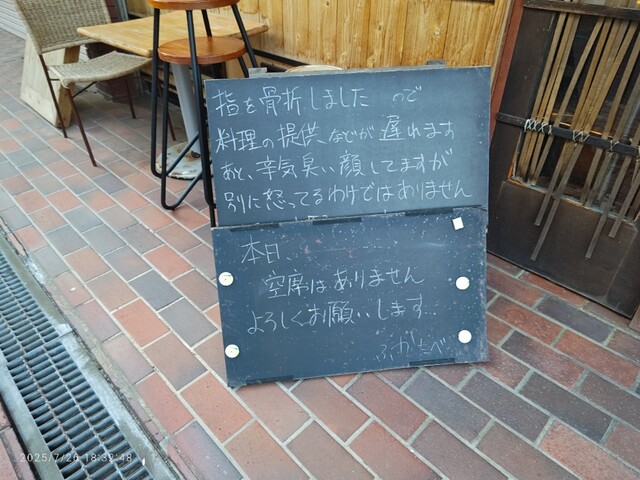 指を骨折しました ので
料理の提供などが遅れます
あと、辛気臭い顔してますが
別に怒ってるわけではありません
本日、
空席はありません
よろしくお願いします…
2025/7/26 18:32:48